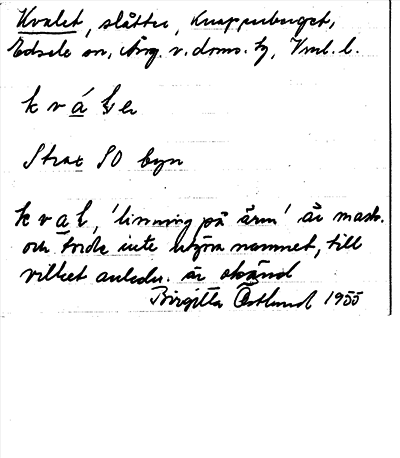 Kvalet, slåtter, Knappenberget,
Edsele sn, Ång. v. doms. tg, Vml. l.
k v á l e
Strax SO byn
k v a l, 'linning på ärm' är mask.
och torde inte utgöra namnet, till
vilket anledn. är okänd
Birgitta Östlund 1955